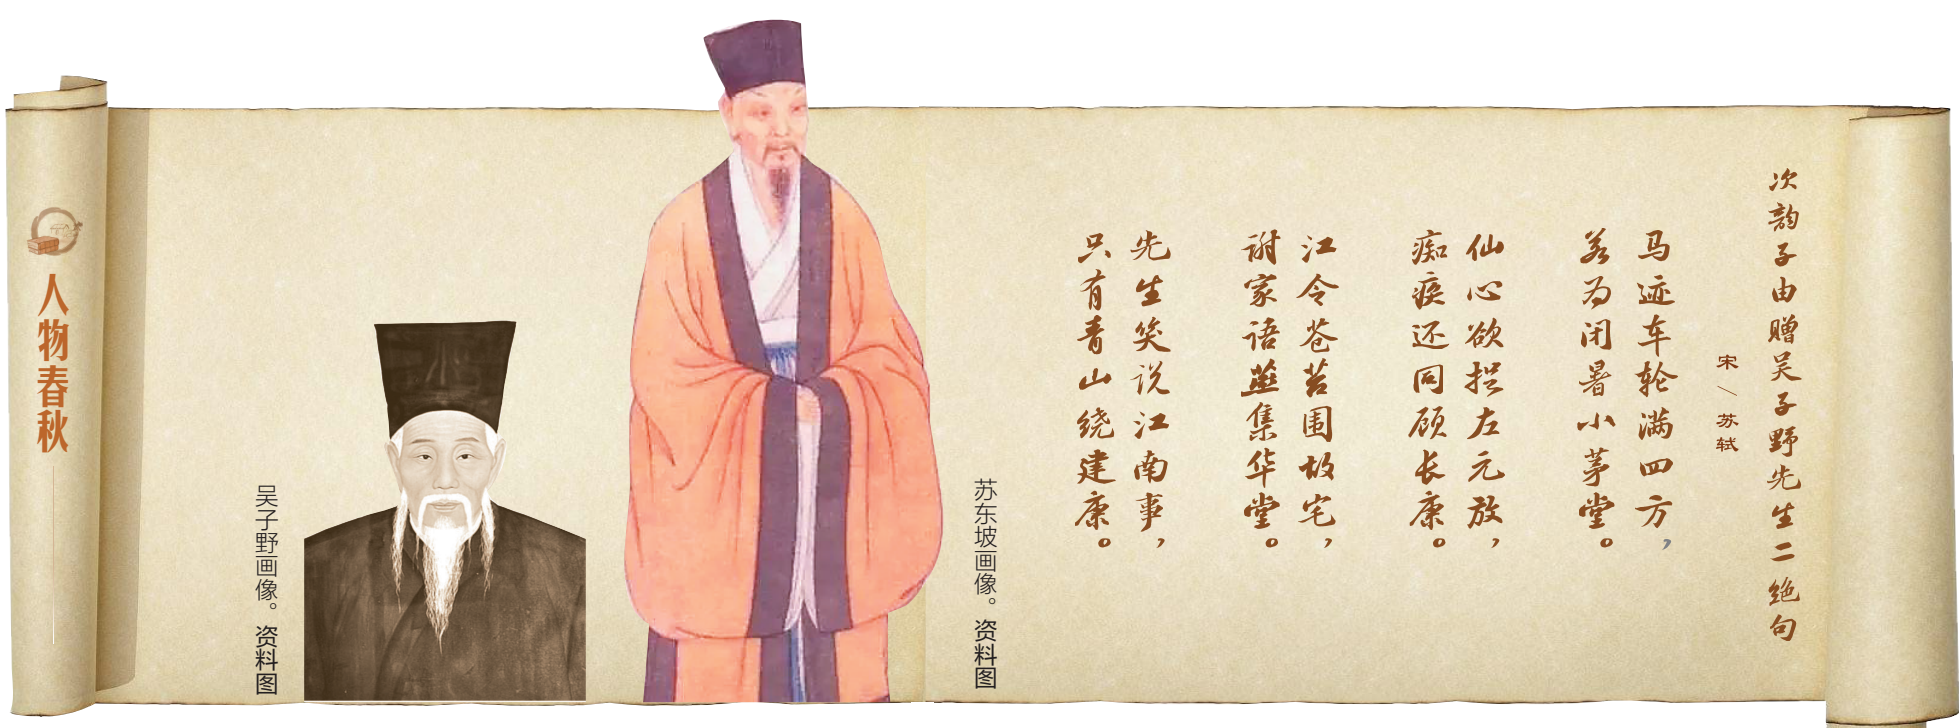 次韵子由赠吴子野先生二绝句
宋 \ 苏轼
马迹车轮满四方，
若为闭暑小茅堂。
仙心欲捉左元放，
痴疾还同顾长康。
江令苍苔围故宅，
谢家语燕集华堂。
先生笑说江南事，
只有青山绕建康。
苏东坡画像。资料图
吴子野画像。资料图
人物春秋